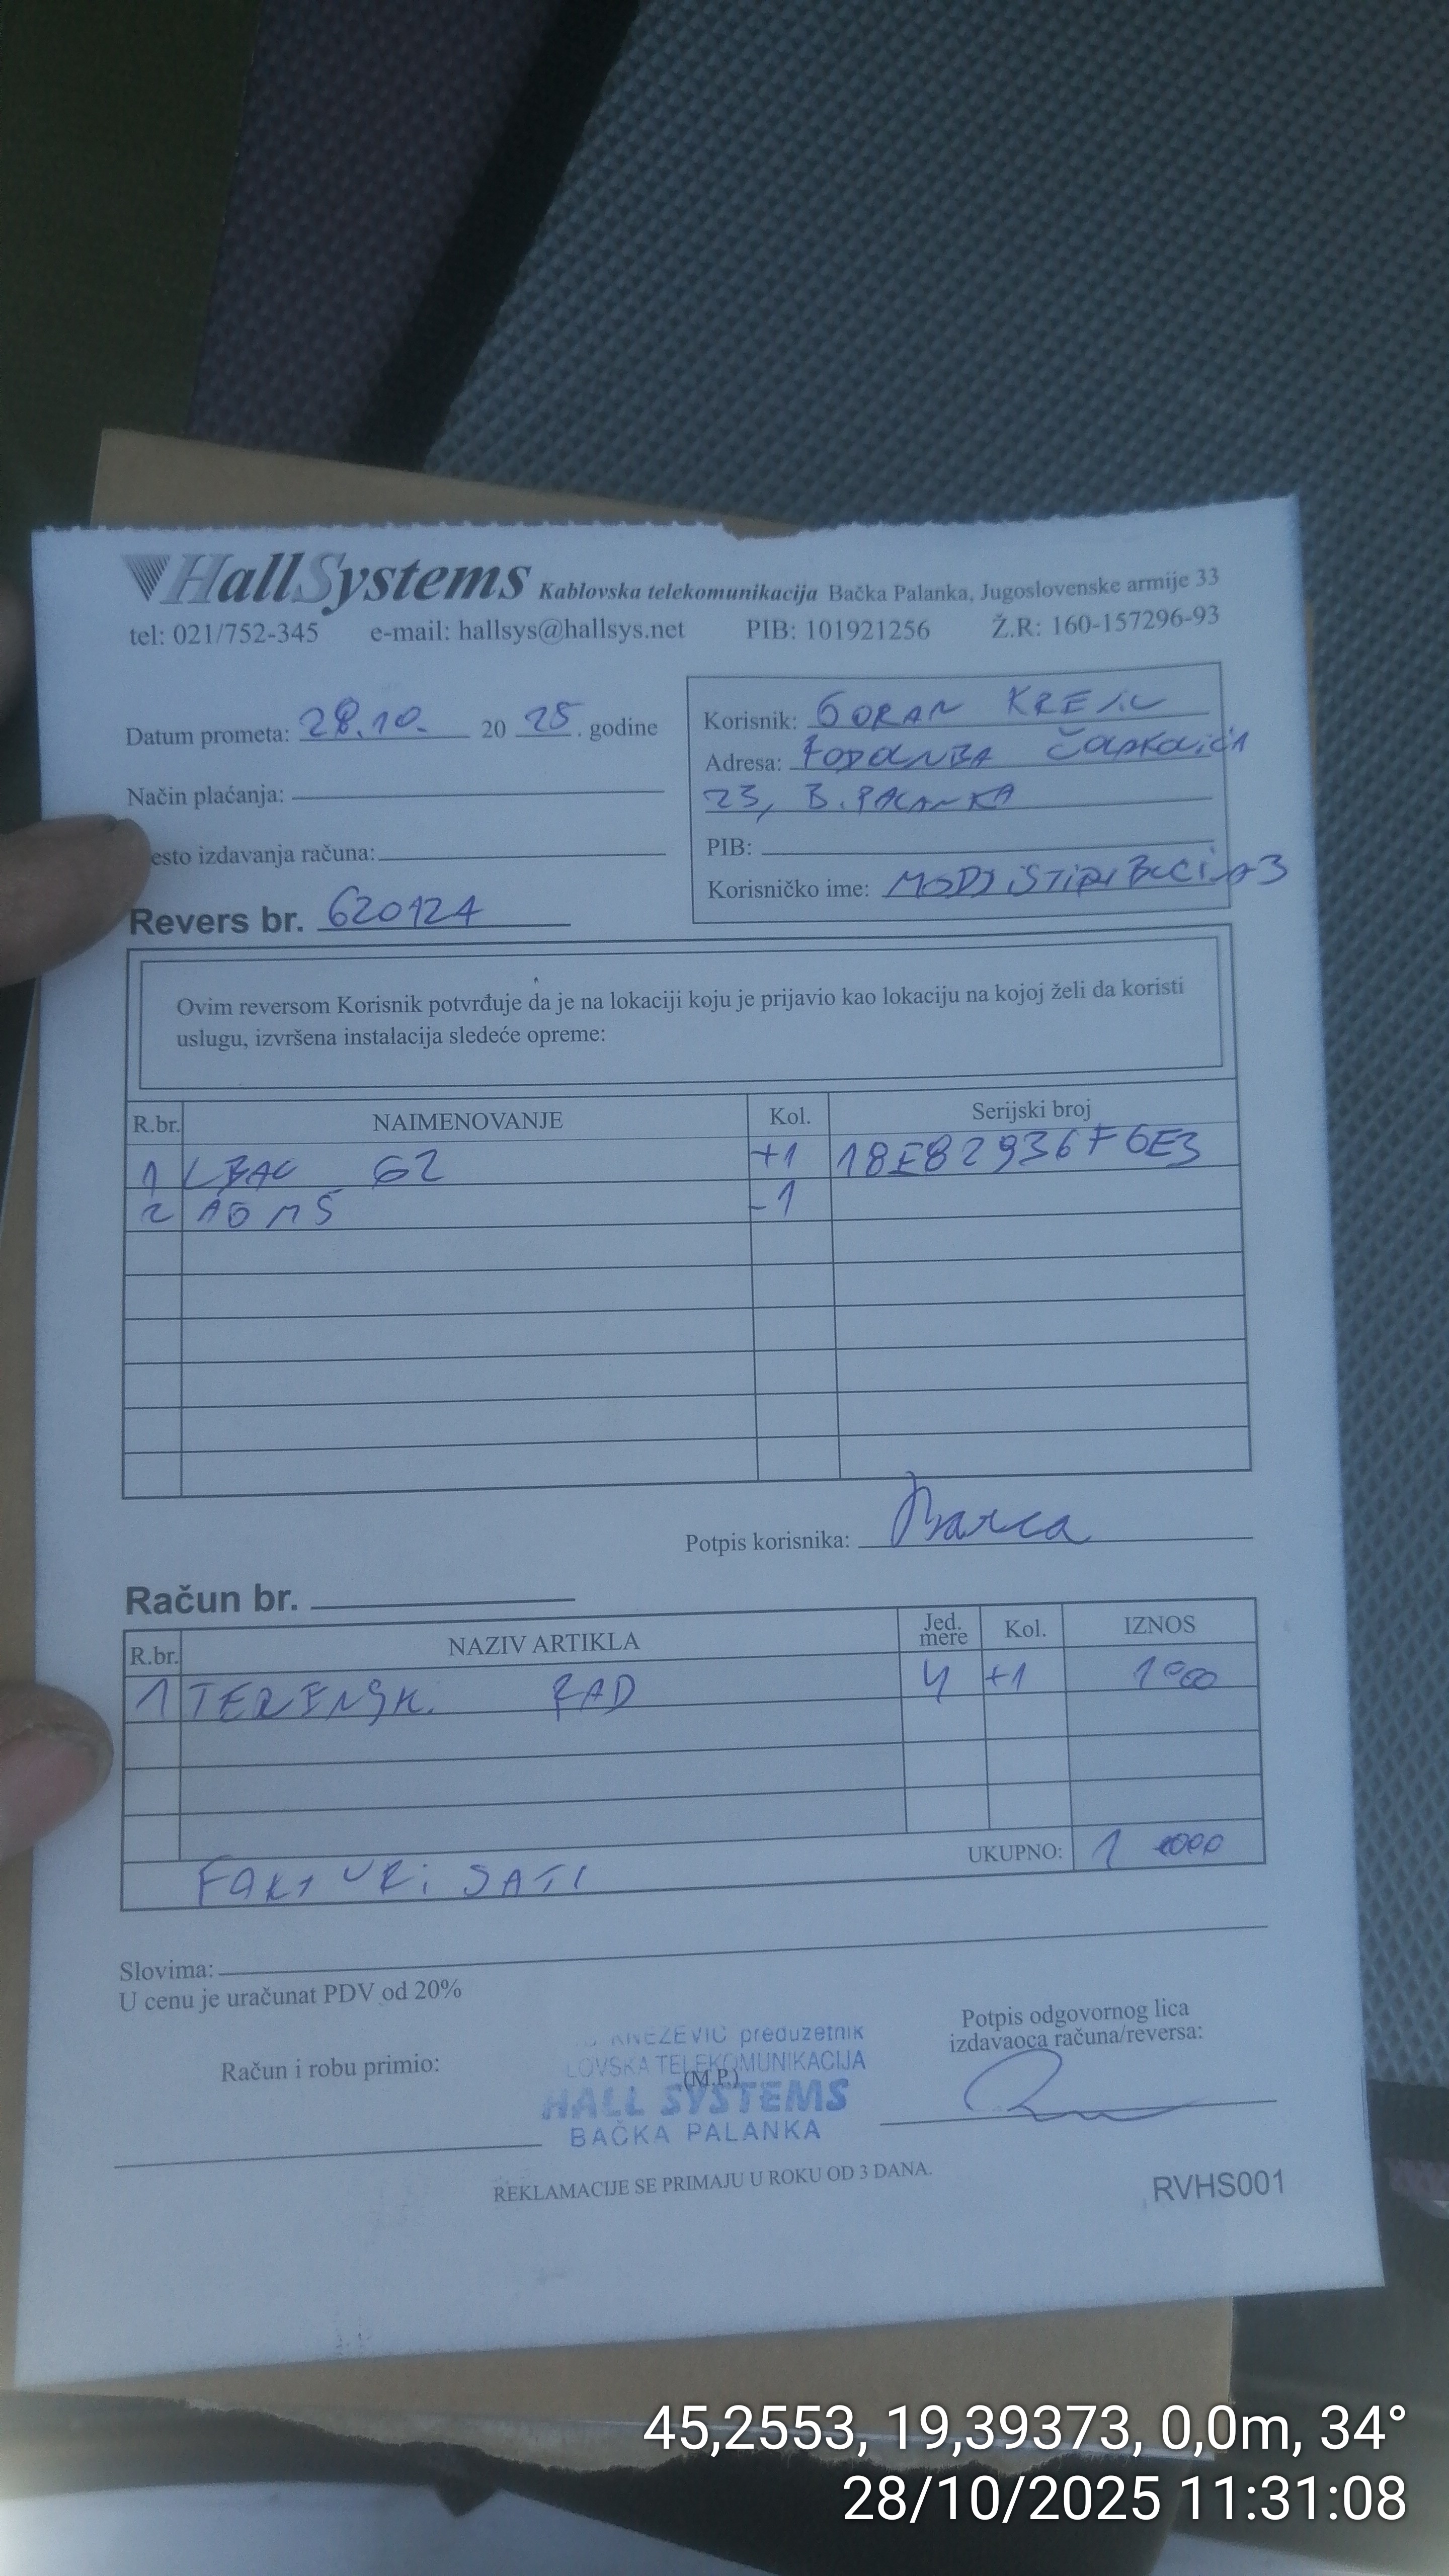 HallSystems Kablovska telekomunikacija Bačka Palanka, Jugoslovenske armije 33
tel: 021/752-345 e-mail: hallsys@hallsys.net PIB: 101921256 Ž.R: 160-157296-93
Datum prometa: 28.10. 20 25. godine
Način plaćanja:
esto izdavanja računa:
Revers br. 620124
Korisnik: GORAN
Adresa:
23, B. PALANKA
PIB:
Korisničko ime:
Ovim reversom Korisnik potvrđuje da je na lokaciji koju je prijavio kao lokaciju na kojoj želi da koristi
uslugu, izvršena instalacija sledeće opreme:
R.br. NAIMENOVANJE Kol. Serijski broj
1 LBAC G2 +1 18E82936F6E3
2 AOM5 -1
Potpis korisnika:
Račun br.
R.br. NAZIV ARTIKLA Jed. mere Kol. IZNOS
1 TERENSK. RAD +1 1000
UKUPNO: 1
FAKTURISATI
Slovima:
U cenu je uračunat PDV od 20%
Račun i robu primio:
KNEŽEVIĆ preduzetnik
LOVSKA TELEKOMUNIKACIJA
(M.P.)
HALL SYSTEMS
BAČKA PALANKA
Potpis odgovornog lica
izdavaoca računa/reversa:
REKLAMACIJE SE PRIMAJU U ROKU OD 3 DANA.
RVHS001
45,2553, 19,39373, 0,0m, 34°
28/10/2025 11:31:08